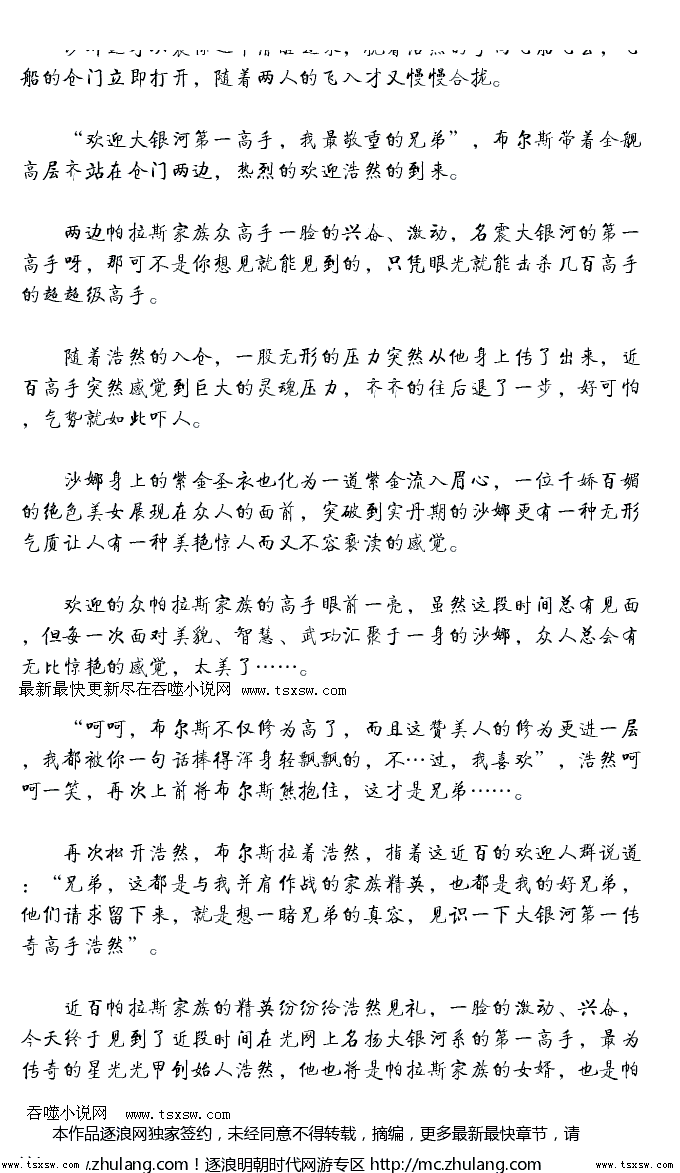 船的仓门立即打开，随着两人的飞入才又慢慢合拢。
“欢迎大银河第一高手，我最敬重的兄弟”，布尔斯带着全舰
高层齐站在仓门两边，热烈的欢迎浩然的到来。
两边帕拉斯家族众高手一脸的兴奋、激动，名震大银河的第一
高手呀，那可不是你想见就能见到的，只凭眼光就能击杀几百高手
的超超级高手。
随着浩然的入仓，一股无形的压力突然从他身上传了出来，近
百高手突然感觉到巨大的灵魂压力，齐齐的往后退了一步，好可怕
，气势就如此吓人。
沙娜身上的紫金圣衣也化为一道紫金流入眉心，一位千娇百媚
的绝色美女展现在众人的面前，突破到实丹期的沙娜更有一种无形
气质让人有一种美艳惊人而又不容亵渎的感觉。
欢迎的众帕拉斯家族的高手眼前一亮，虽然这段时间总有见面
，但每一次面对美貌、智慧、武功汇聚于一身的沙娜，众人总会有
无比惊艳的感觉，太美了……。
最新最快更新尽在吞噬小说网 www.tsxsw.com
“呵呵，布尔斯不仅修为高了，而且这赞美人的修为更进一层
，我都被你一句话捧得浑身轻飘飘的，不…过，我喜欢”，浩然呵
呵一笑，再次上前将布尔斯熊抱住，这才是兄弟……。
再次松开浩然，布尔斯拉着浩然，指着这近百的欢迎人群说道
：“兄弟，这都是与我并肩作战的家族精英，也都是我的好兄弟，
他们请求留下来，就是想一睹兄弟的真容，见识一下大银河第一传
奇高手浩然”。
近百帕拉斯家族的精英纷纷给浩然见礼，一脸的激动、兴奋，
今天终于见到了近段时间在光网上名扬大银河系的第一高手，最为
传奇的星光光甲创始人浩然，他也将是帕拉斯家族的女婿，也是帕
吞噬小说网 www.tsxsw.com
本作品逐浪网独家签约，未经同意不得转载，摘编，更多最新最快章节，请
www.tsxsw.com .zhulang.com！逐浪明朝时代网游专区 http://mc.zhulang.com/ www.tsxsw.com